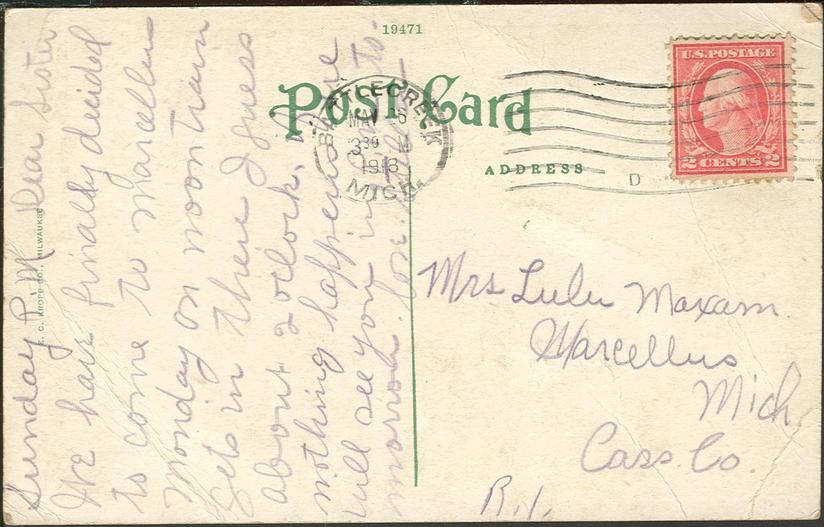 19471
Post Card
BATTLE CREEK
MAY 6
330 P
1918
MICH.
U.S. POSTAGE
2 CENTS 2
ADDRESS
D
Sunday P.M. Dear Sister
We have finally decided
to come to Marcellus
Monday on noon train
Gets in there I guess
about 2 oclock. If
nothing happens we
will see you in
morrow. love.
E. C. KROPP CO., MILWAUKEE
Mrs Lulu Maxam
Marcellus
Mich
Cass. Co.
R. 1.